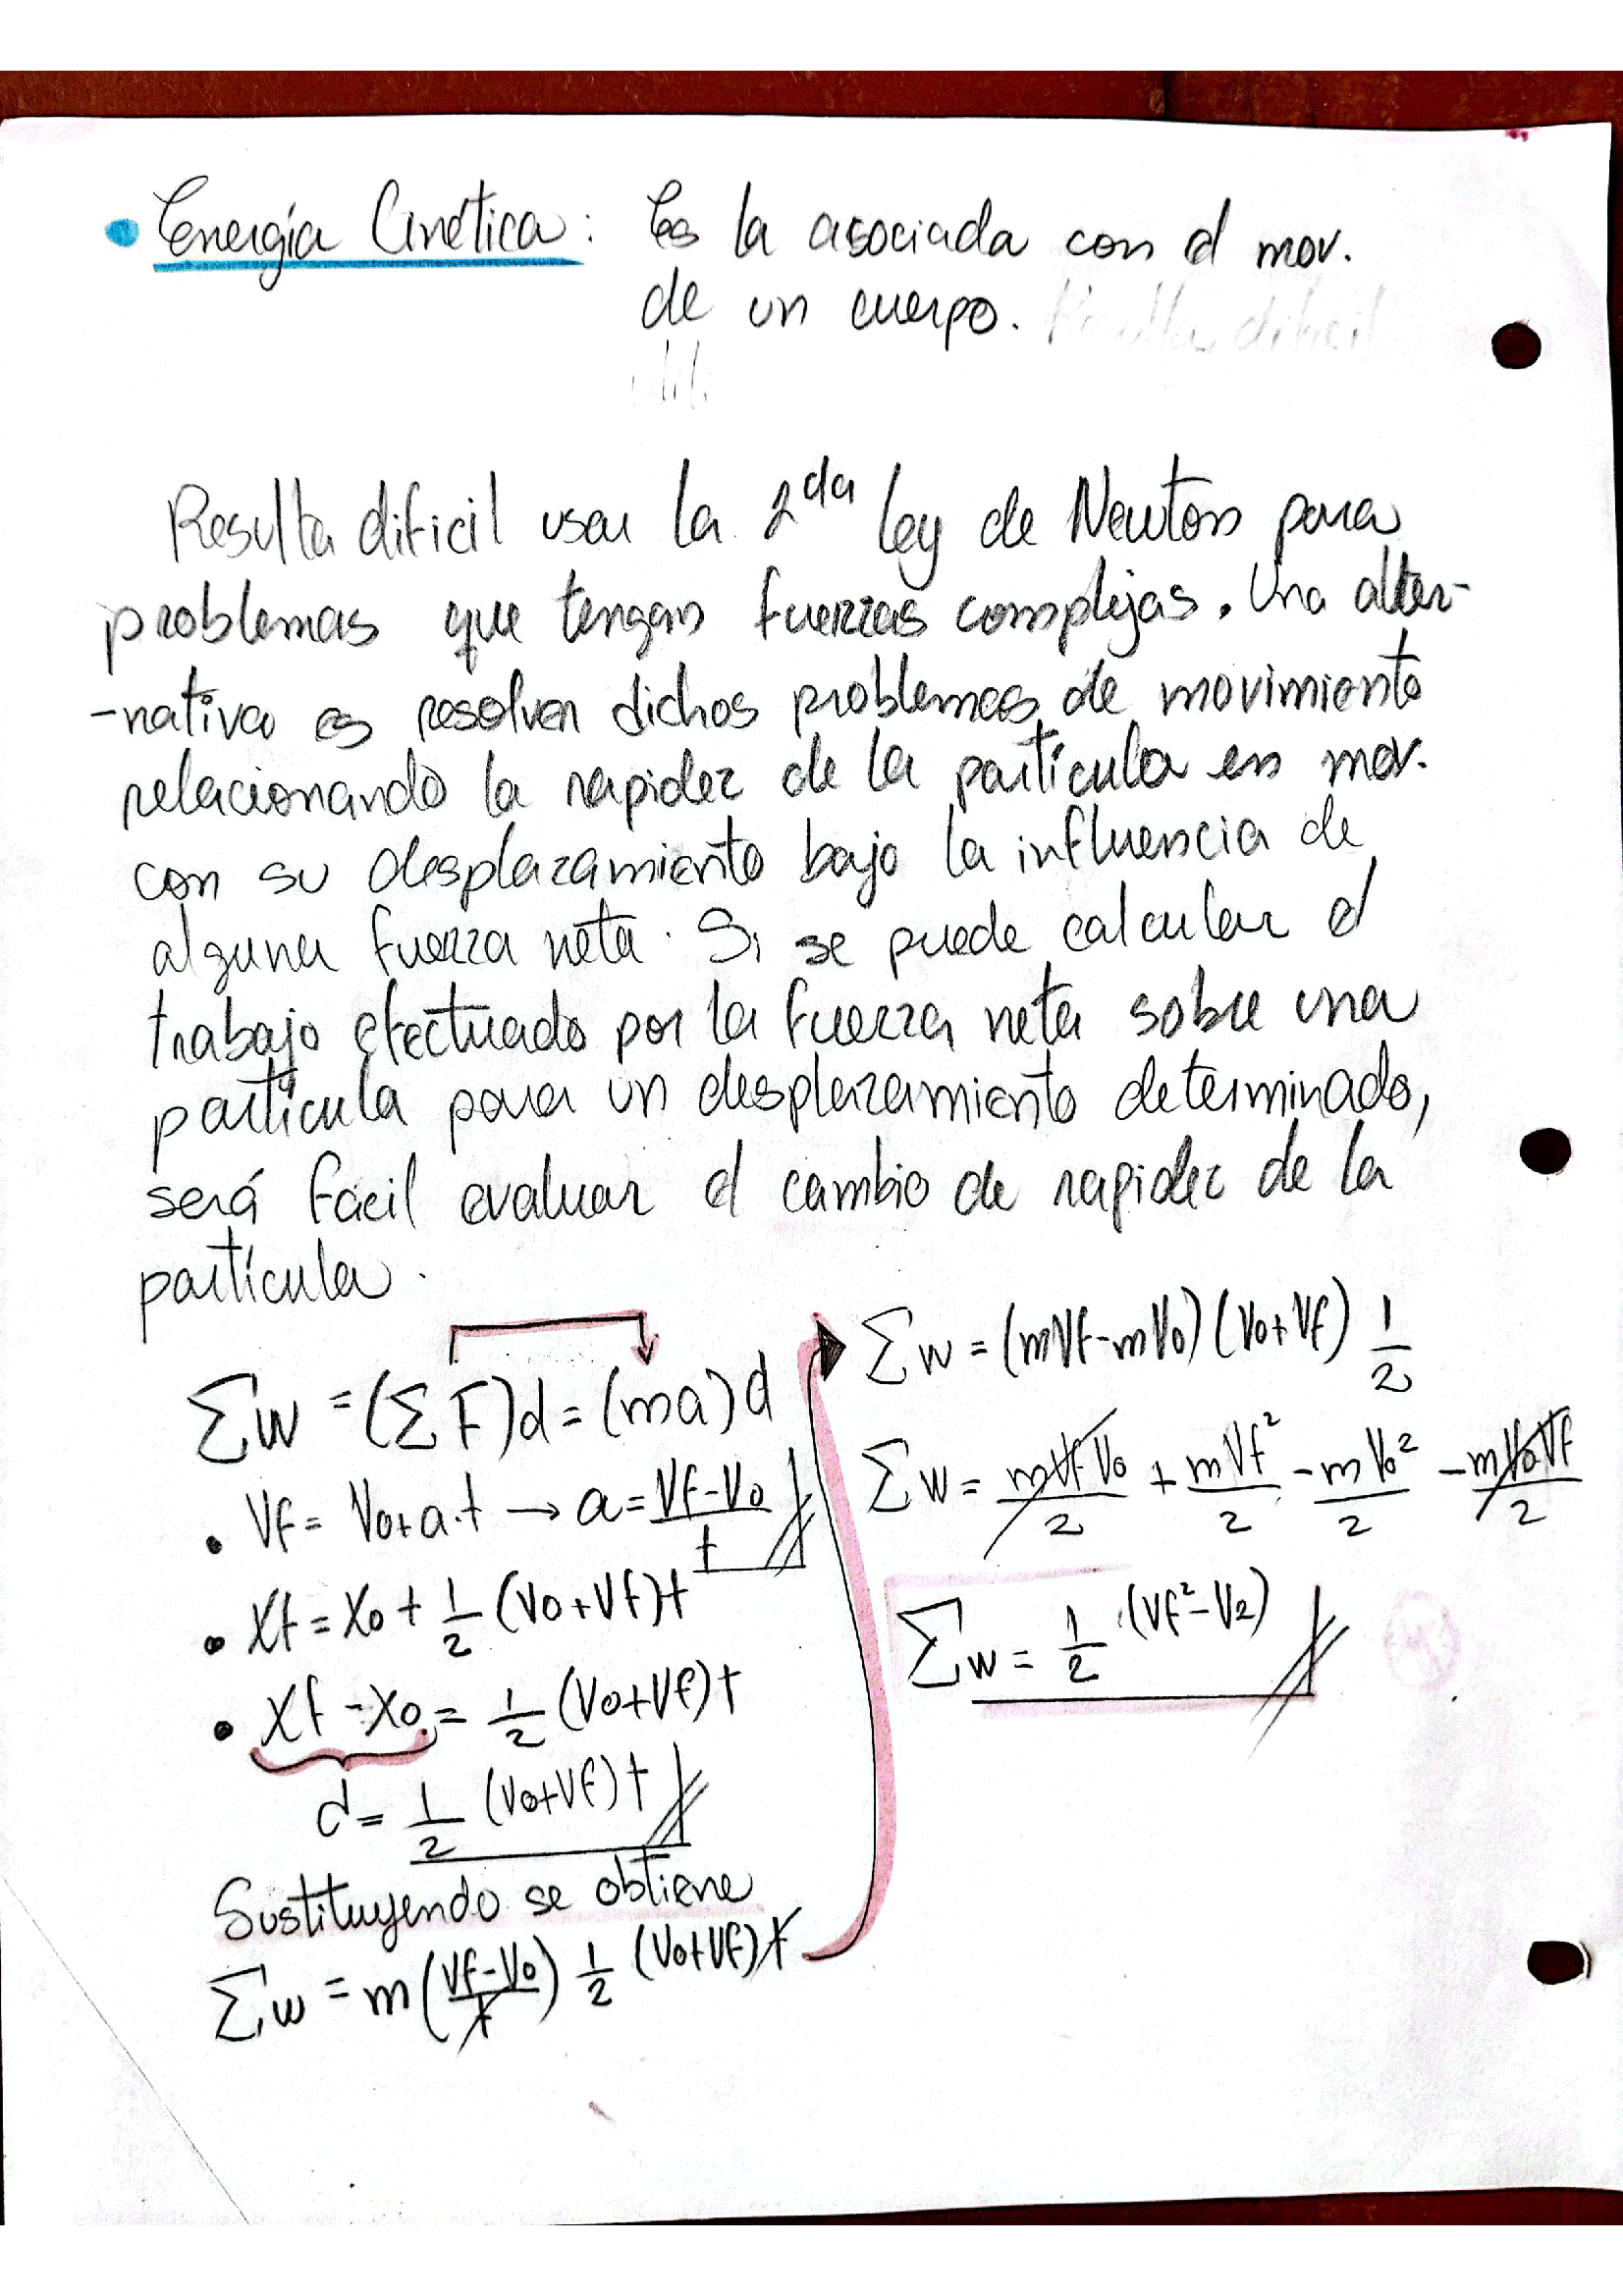 • Energía Cinética: Es la asociada con el mov.
de un cuerpo. Resulta dificil
Resulta dificil usar la 2da ley de Newton para
problemas que tengan fuerzas complejas. Una alter-
-nativa es resolver dichos problemas de movimiento
relacionando la rapidez de la partícula en mov.
con su desplazamiento bajo la influencia de
alguna fuerza neta. Si se puede calcular el
trabajo efectuado por la fuerza neta sobre una
partícula para un desplazamiento determinado,
será fácil evaluar el cambio de rapidez de la
partícula.
ΣW = (ΣF)d = (ma)d
• Vf = Vo+a.t → a = Vf-Vo/t
• Xf = Xo + 1/2 (Vo+Vf)t
• Xf - Xo = 1/2 (Vo+Vf)t
d = 1/2 (Vo+Vf)t
Sustituyendo se obtiene
ΣW = m(Vf-Vo/t) 1/2 (Vo+Vf)t
ΣW = (mVf-mVo)(Vo+Vf) 1/2
ΣW = mVfVo/2 + mVf²/2 - mVo²/2 - mVoVf/2
ΣW = 1/2 (Vf²-V2)